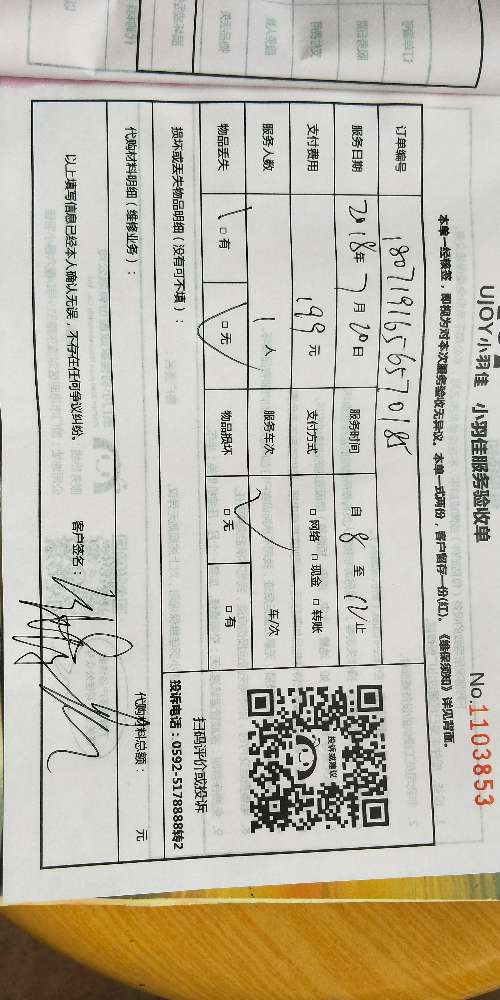 UJOY小羽佳 小羽佳服务验收单
No.1103853
本单一经核签，即视为对本次服务验收无异议。本单一式两份，客户留存一份(红)。《维保须知》详见背面。
订单编号 1807191656570185
服务日期 2018年7月20日 服务时间 自8至12止
支付费用 199元 支付方式 □网络 □现金 □转账
服务人数 1人 服务车次 车/次
物品丢失 □有 □无 物品损坏 □无 □有
投诉或建议
扫码评价或投诉
投诉电话：0592-5178888转2
损坏或丢失物品明细（没有可不填）：
代购材料明细（维修业务）：
代购材料总额： 元
以上填写信息已经本人确认无误，不存在任何争议纠纷。 客户签名：